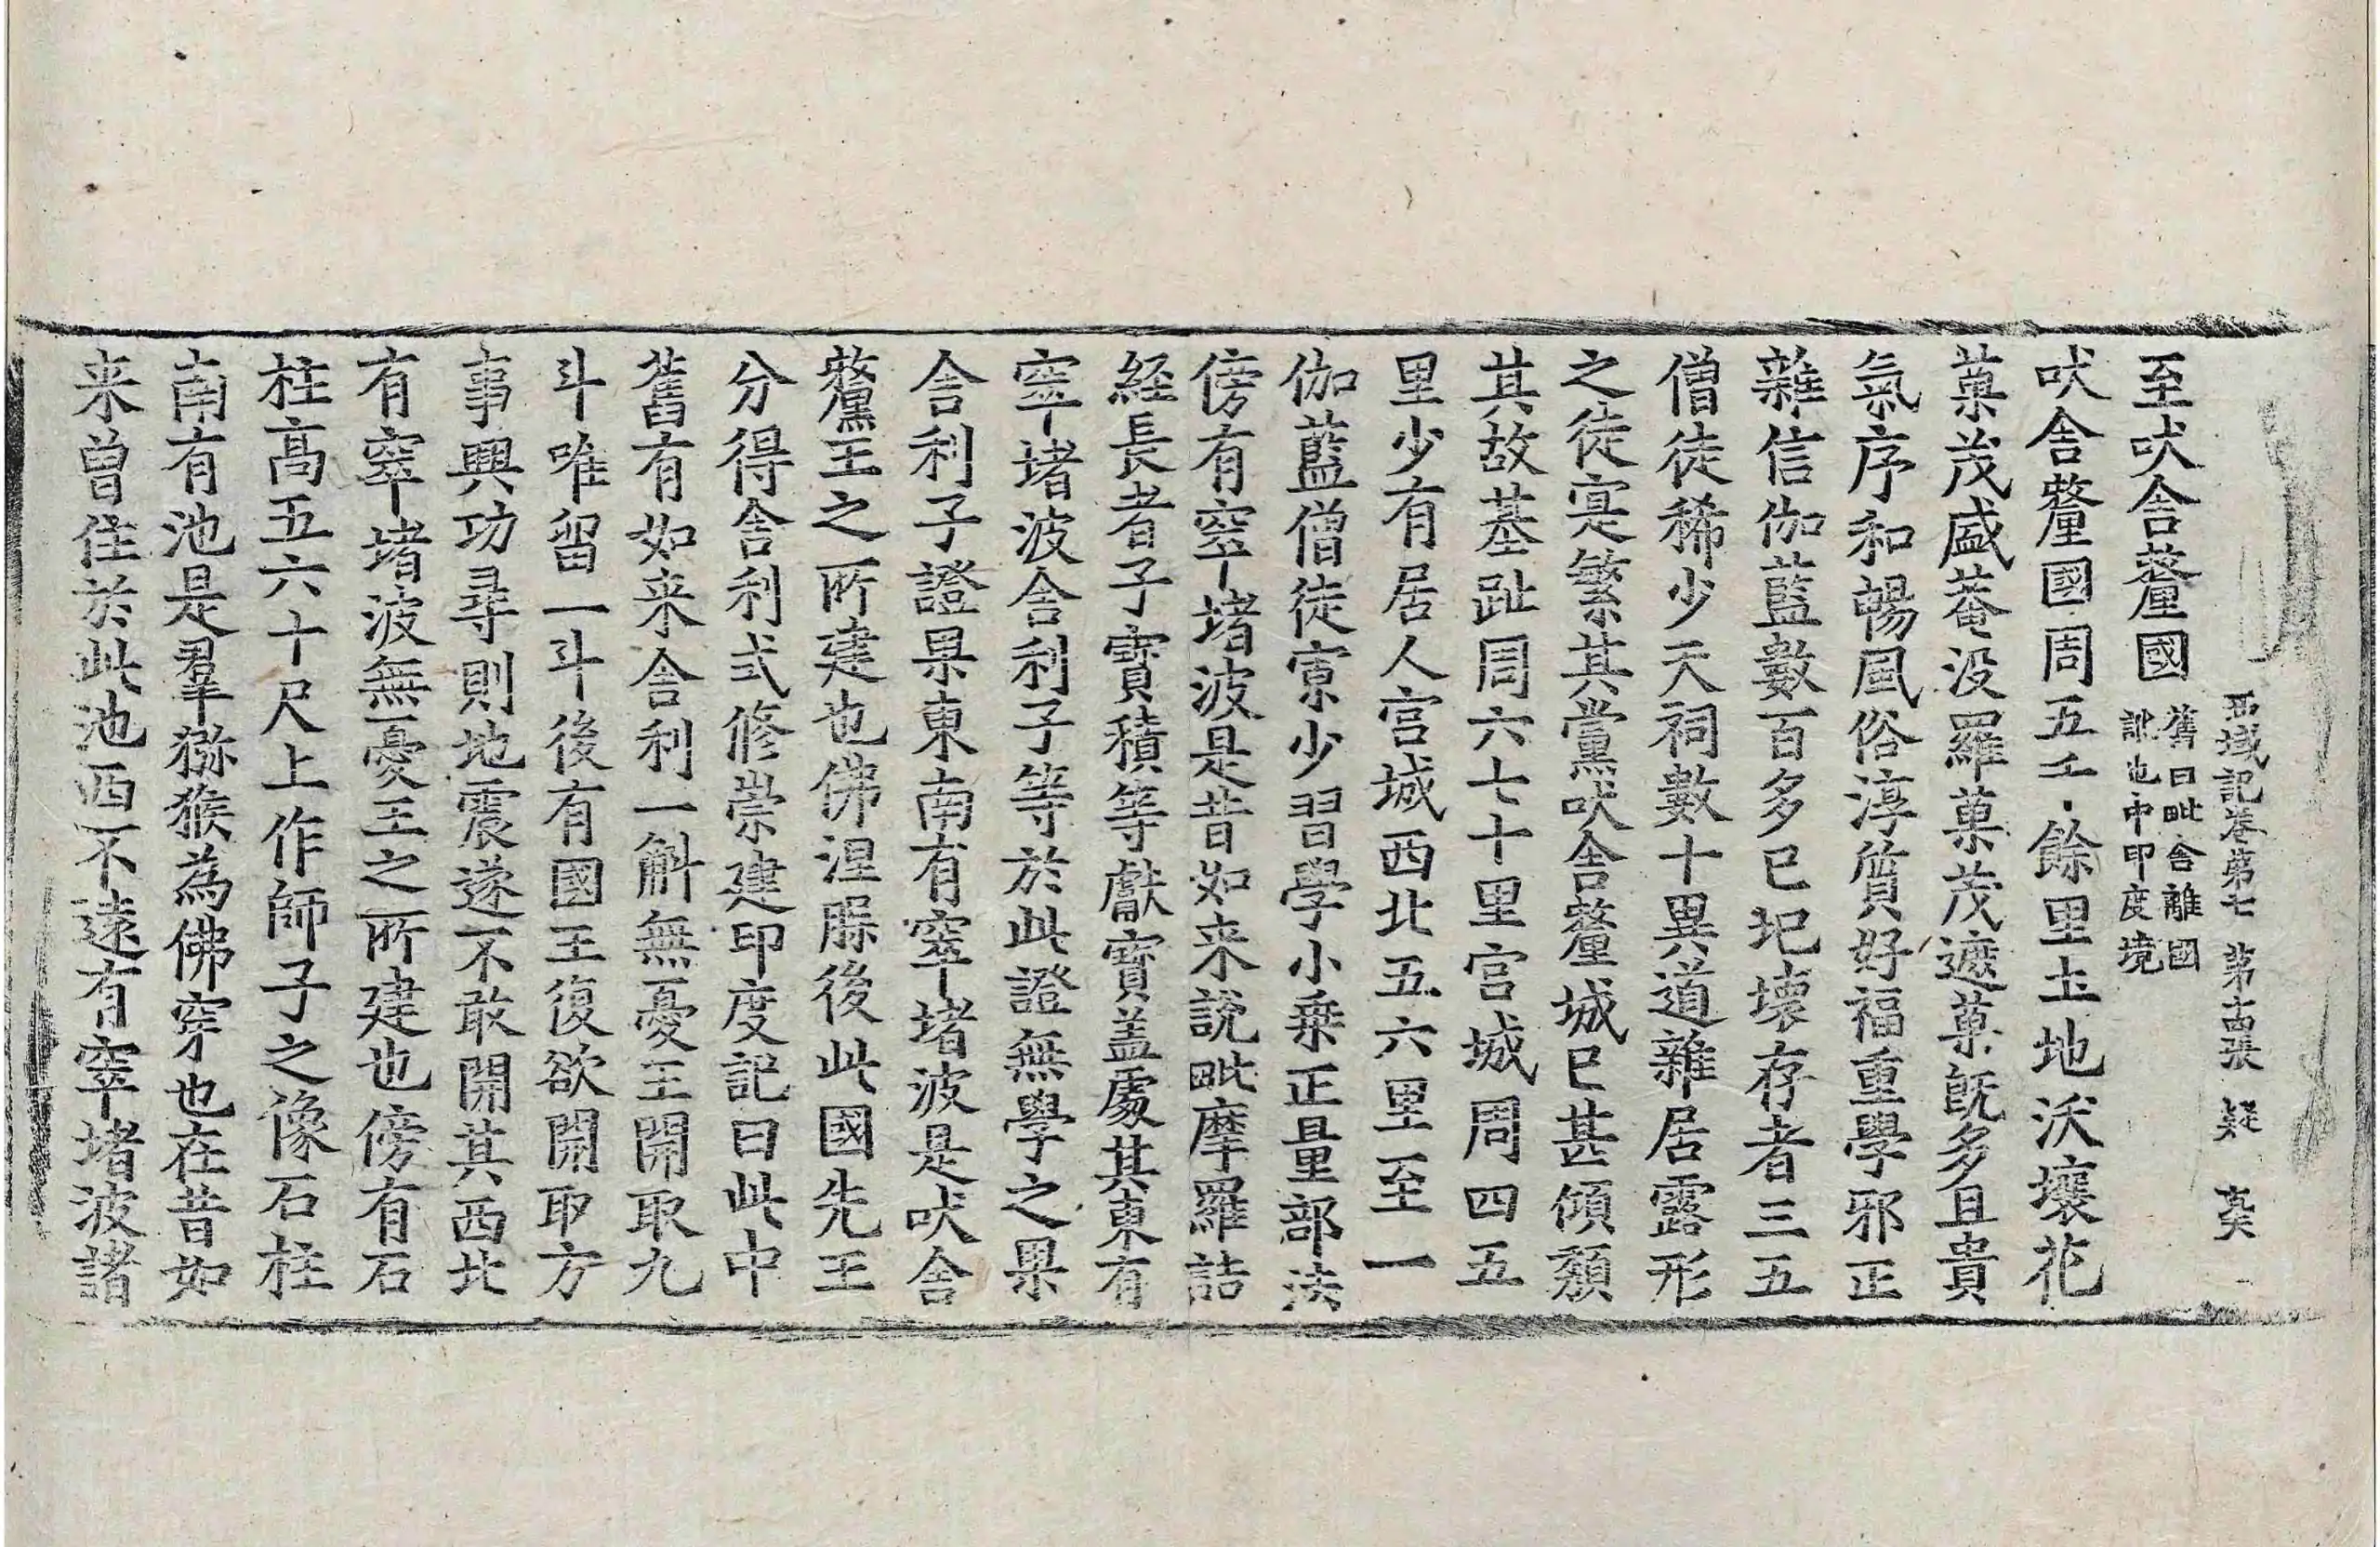 西域記卷第七 第十四張 疑 
至吠舍釐國
舊曰毗舍離國
訛也中印度境
吠舍釐國周五千餘里土地沃壤花
菓茂盛菴没羅菓茂遮菓旣多且貴
氣序和暢風俗淳質好福重學邪正
雜信伽藍數百多已圮壞存者三五
僧徒稀少天祠數十異道雜居露形
之徒寔繁其黨吠舍釐城已甚傾頹
其故基趾周六七十里宮城周四五
里少有居人宮城西北五六里至一
伽藍僧徒寡少習學小乗正量部法
傍有窣堵波是昔如来説毗摩羅詰
經長者子寶積等獻寶盖處其東有
窣堵波舍利子等於此證無學之果
舍利子證果東南有窣堵波是吠舍
釐王之所建也佛涅槃後此國先王
分得舍利式修崇建印度記曰此中
舊有如来舍利一斛無憂王開取九
斗唯留一斗後有國王復欲開取方
事興功尋則地震遂不敢開其西北
有窣堵波無憂王之所建也傍有石
柱高五六十尺上作師子之像石柱
南有池是羣猕猴為佛穿也在昔如
来曾住於此池西不遠有窣堵波諸